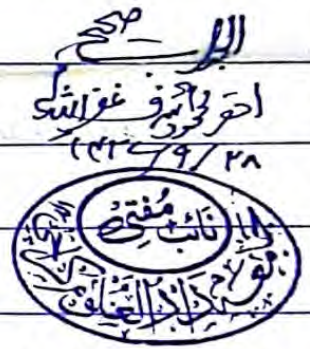 الجواب صحیح
احقر محمود اشرف غفر اللہ لہ
۲۸/۹/
نائب مفتی
دارالعلوم کراچی